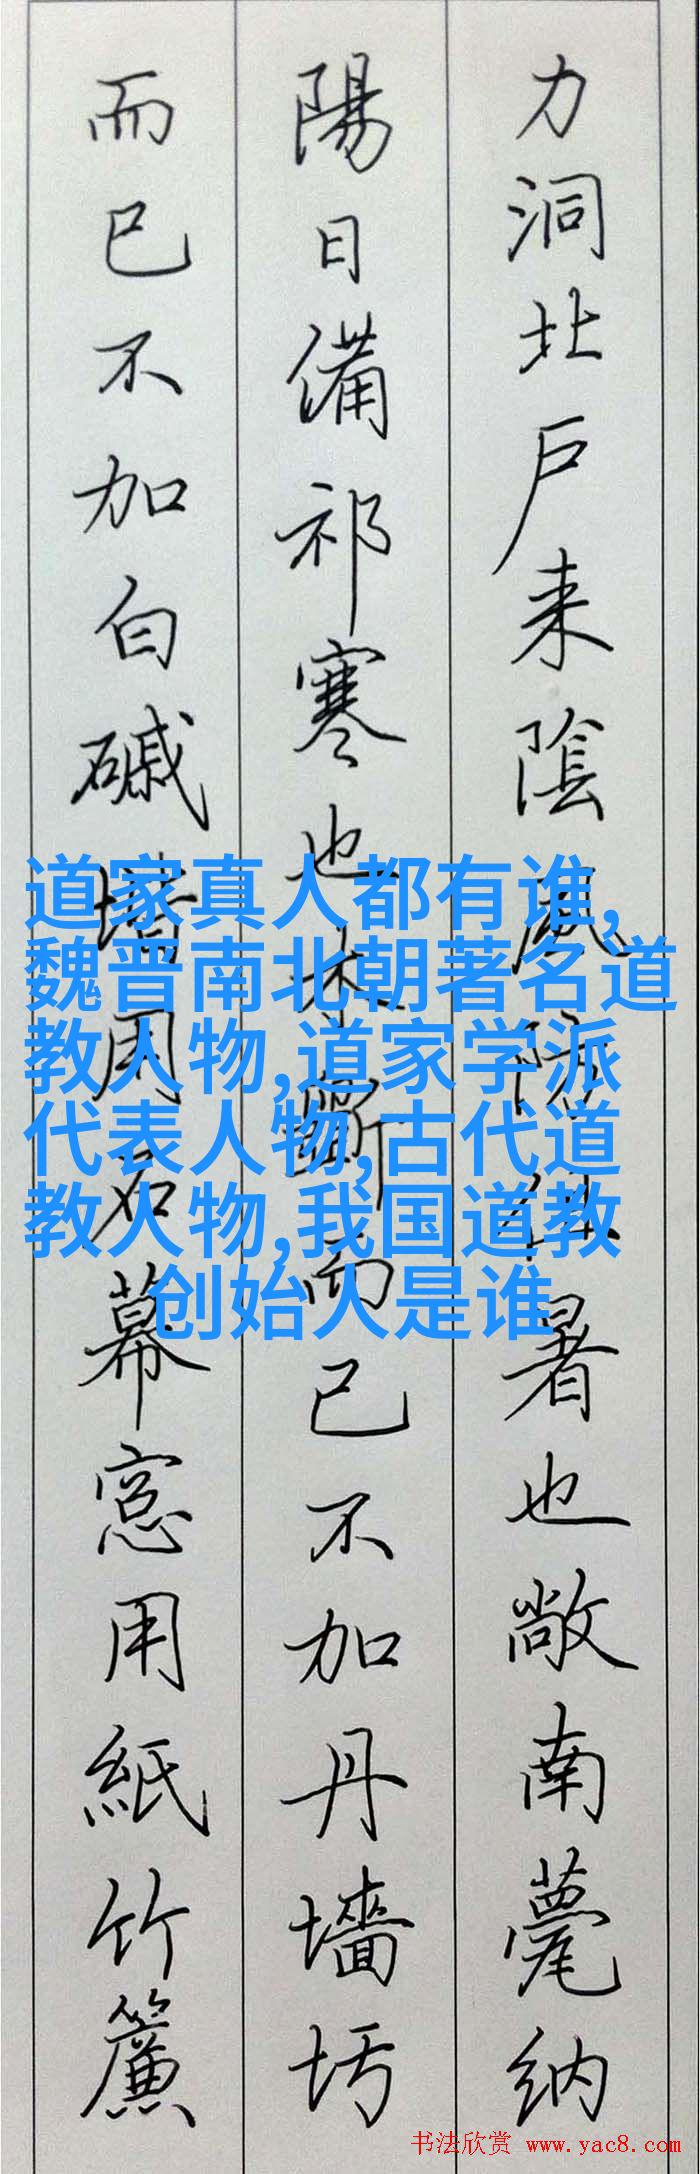 力洞北户来陰風防徂暑也敞南甍纳
陽日備祁寒也木斲而已不加丹墻圬
而已不加白磩階用石幕窓用紙竹簾
道家真人都有谁,
魏晋南北朝著名道
教人物,道家学派
代表人物,古代道
教人物,我国道教
创始人是谁
书法欣赏 www.yac8.com